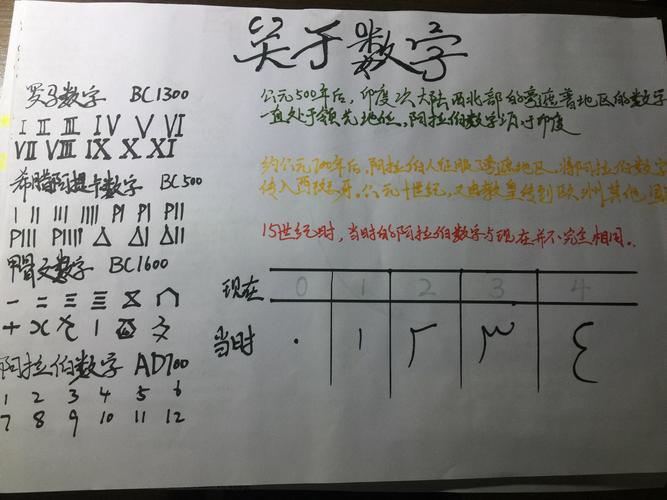 关于数字
罗马数字 BC1300
I II III IV V VI
VII VIII IX X XI
希腊阿提卡数字 BC500
I II III IIII ΡI ΡI ΡII
ΡIII ΡIIII Δ ΔI ΔII
甲骨文数字 BC1600
阿拉伯数字 AD700
1 2 3 4 5 6
7 8 9 10 11 12
公元500年后,印度次大陆西北部的旁遮普地区的数字
一直处于领先地位,阿拉伯数字源于印度
约公元700年后,阿拉伯人征服了旁遮地区,将阿拉伯数字
传入西班牙。公元十世纪,又由教皇传到欧洲其他国
15世纪时,当时的阿拉伯数字与现在并不完全相同。
现在 0 1 2 3 4
当时 ٠ ١ ٢ ٣ ٤